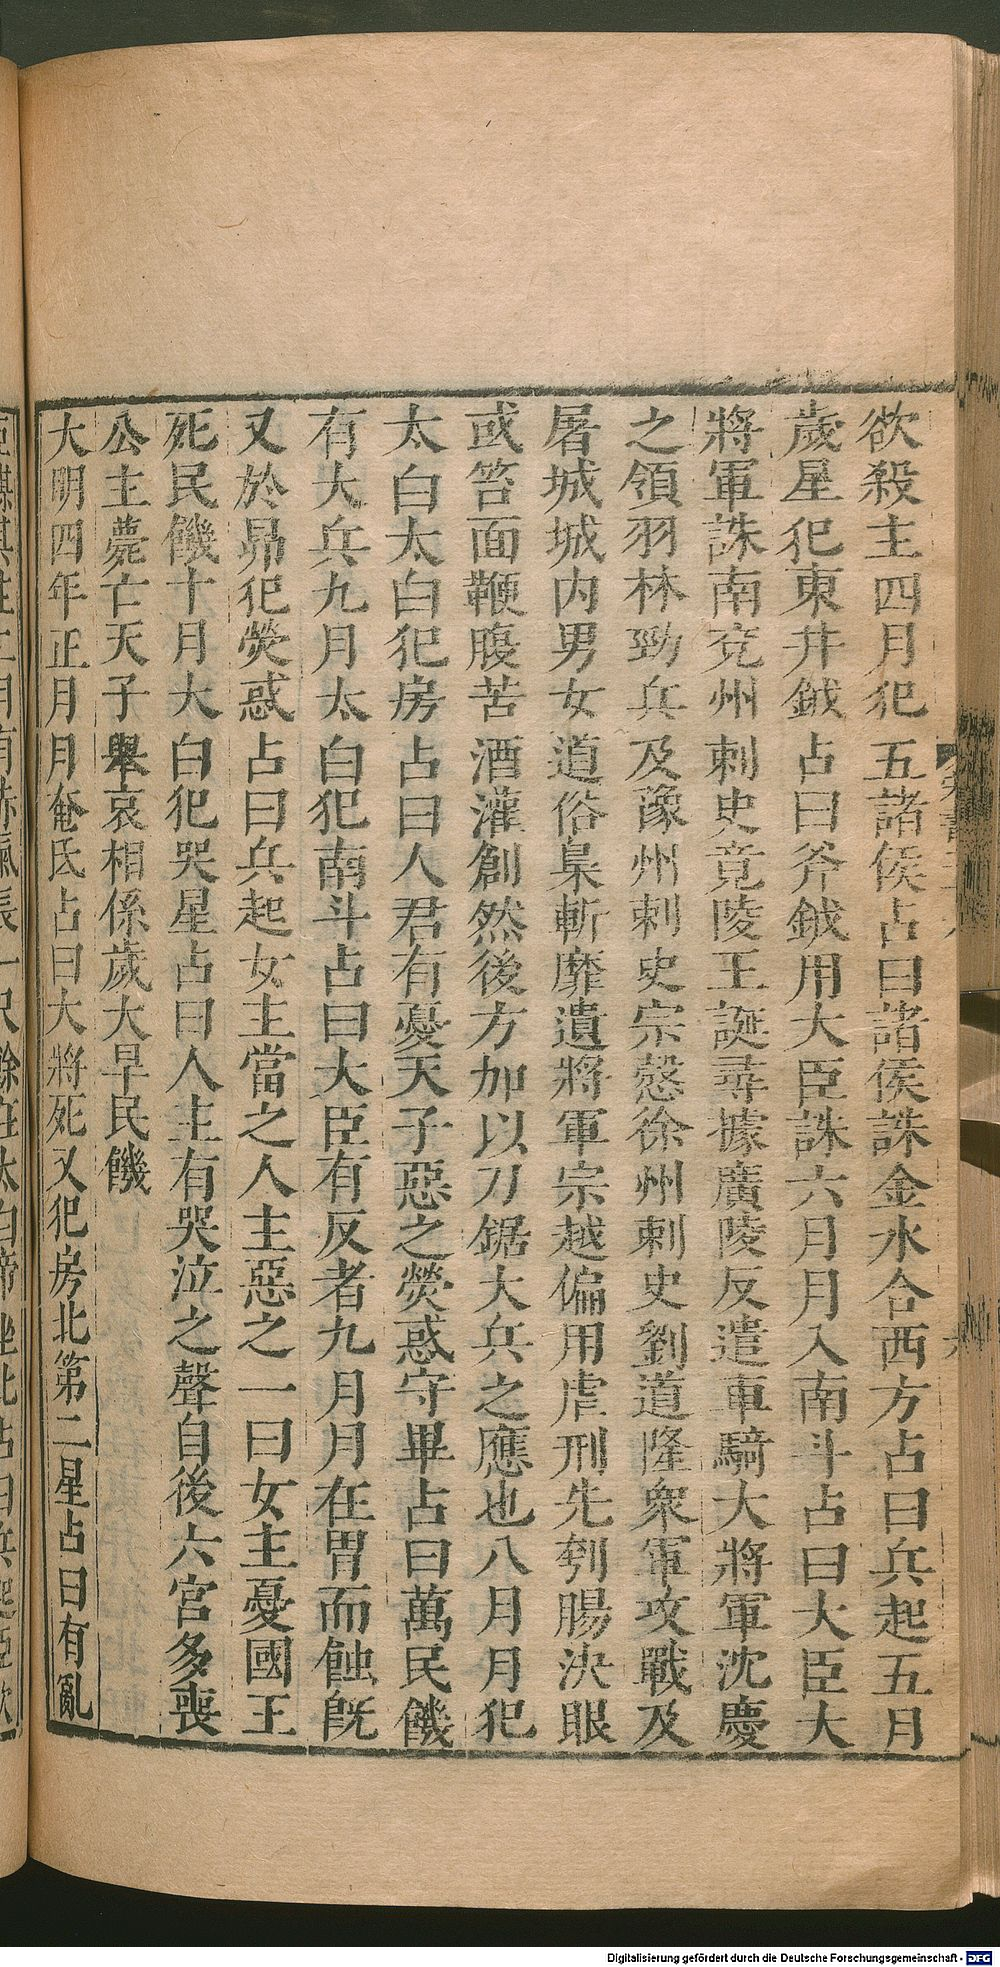 欲殺主四月犯五諸侯占曰諸侯誅金水合西方占曰兵起五月
歲星犯東井鉞占曰斧鉞用大臣誅六月月入南斗占曰大臣大
將軍誅南兗州刺史竟陵王誕尋據廣陵反遣車騎大將軍沈慶
之領羽林勁兵及豫州刺史宗慤徐州刺史劉道隆衆軍攻戰及
屠城城内男女道俗梟斬靡遺將軍宗越偏用虐刑先刳腸決眼
或笞面鞭腹苦酒灌創然後方加以刀鋸大兵之應也八月月犯
太白太白犯房占曰人君有憂天子惡之熒惑守畢占曰萬民饑
有大兵九月太白犯南斗占曰大臣有反者九月月在胃而蝕旣
又於昴犯熒惑占曰兵起女主當之人主惡之一曰女主憂國王
死民饑十月太白犯哭星占曰人主有哭泣之聲自後六宮多喪
公主薨亡天子舉哀相係歲大旱民饑
大明四年正月月奄氐占曰大將死又犯房北第二星占曰有亂
Digitalisierung gefördert durch die Deutsche Forschungsgemeinschaft - DFG